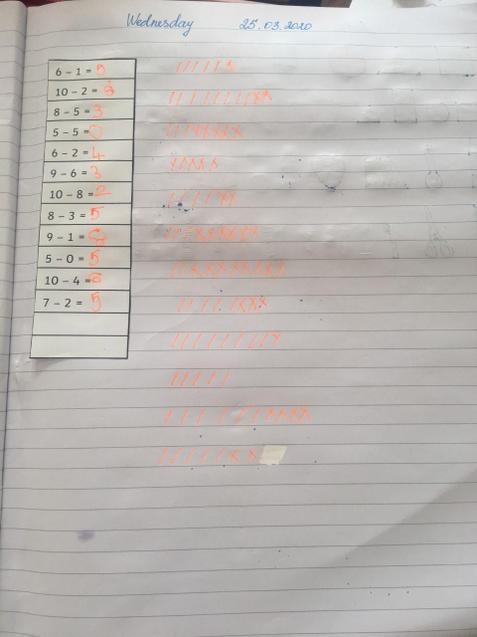 Wednesday 25.03.2020
6 – 1 = 5
10 – 2 = 8
8 – 5 = 3
5 – 5 = 0
6 – 2 = 4
9 – 6 = 3
10 – 8 = 2
8 – 3 = 5
9 – 1 = 8
5 – 0 = 5
10 – 4 = 6
7 – 2 = 5